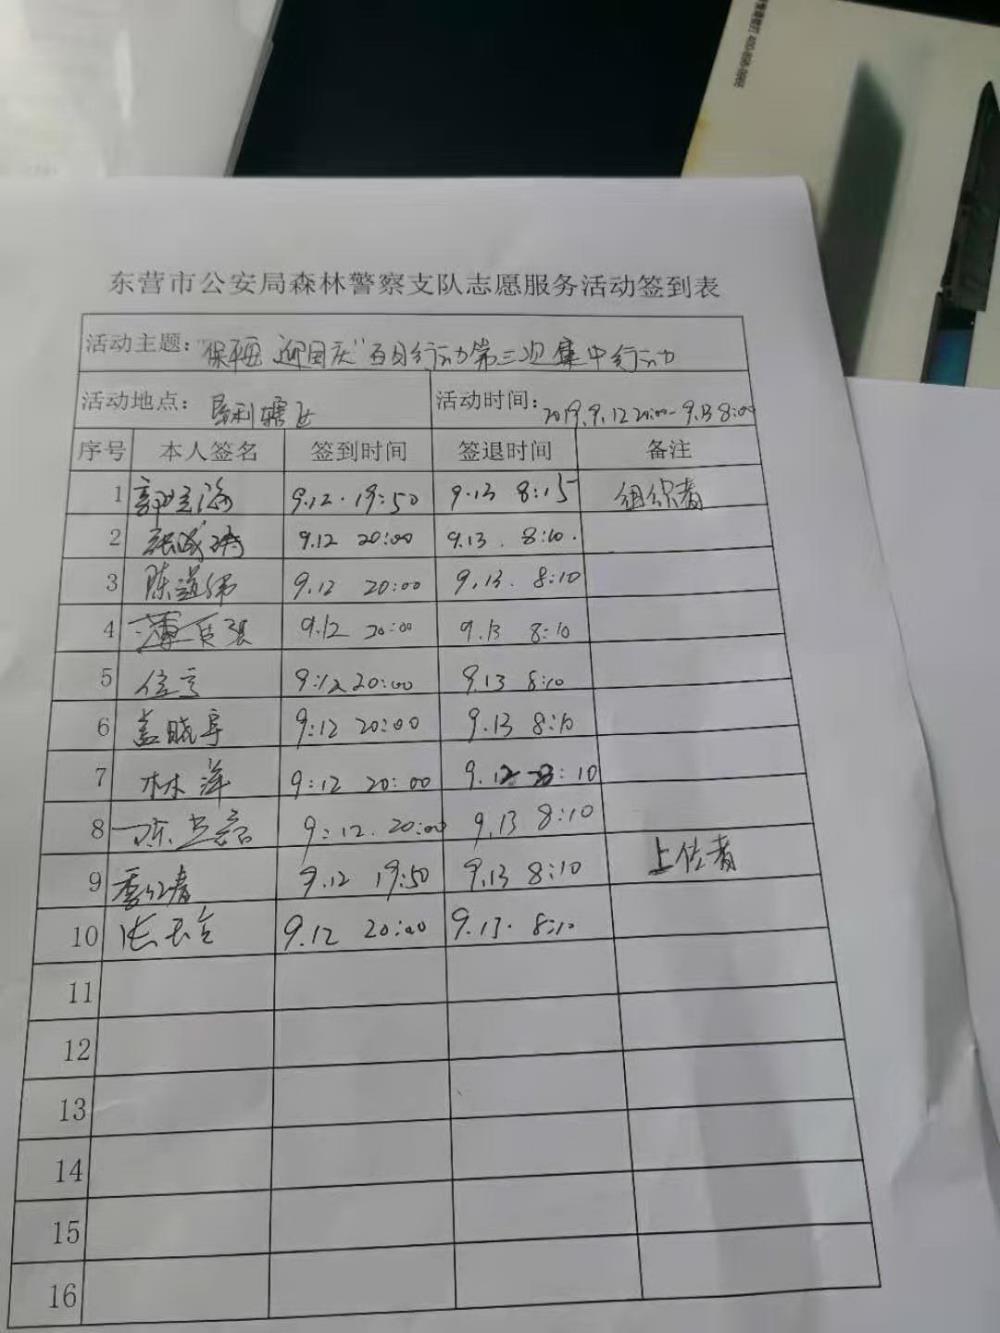 东营市公安局森林警察支队志愿服务活动签到表
活动主题：“保平安 迎国庆”百日行动第三次集中行动
活动地点：垦利辖区 活动时间：2019.9.12 20:00-9.13 8:00
序号 本人签名 签到时间 签退时间 备注
1 9.12.19:50 9.13 8:15 组织者
2 9.12 20:00 9.13. 8:10.
3 陈道伟 9.12 20:00 9.13. 8:10
4 9.12 20:00 9.13 8:10
5 9:12 20:00 9.13 8:10
6 盖晓亭 9:12 20:00 9.13 8:10
7 林洋 9:12 20:00 9.12 8:10
8 9:12.20:00 9.13 8:10
9 9.12 19:50 9.13 8:10 上传者
10 9.12 20:00 9.13. 8:10
11
12
13
14
15
16